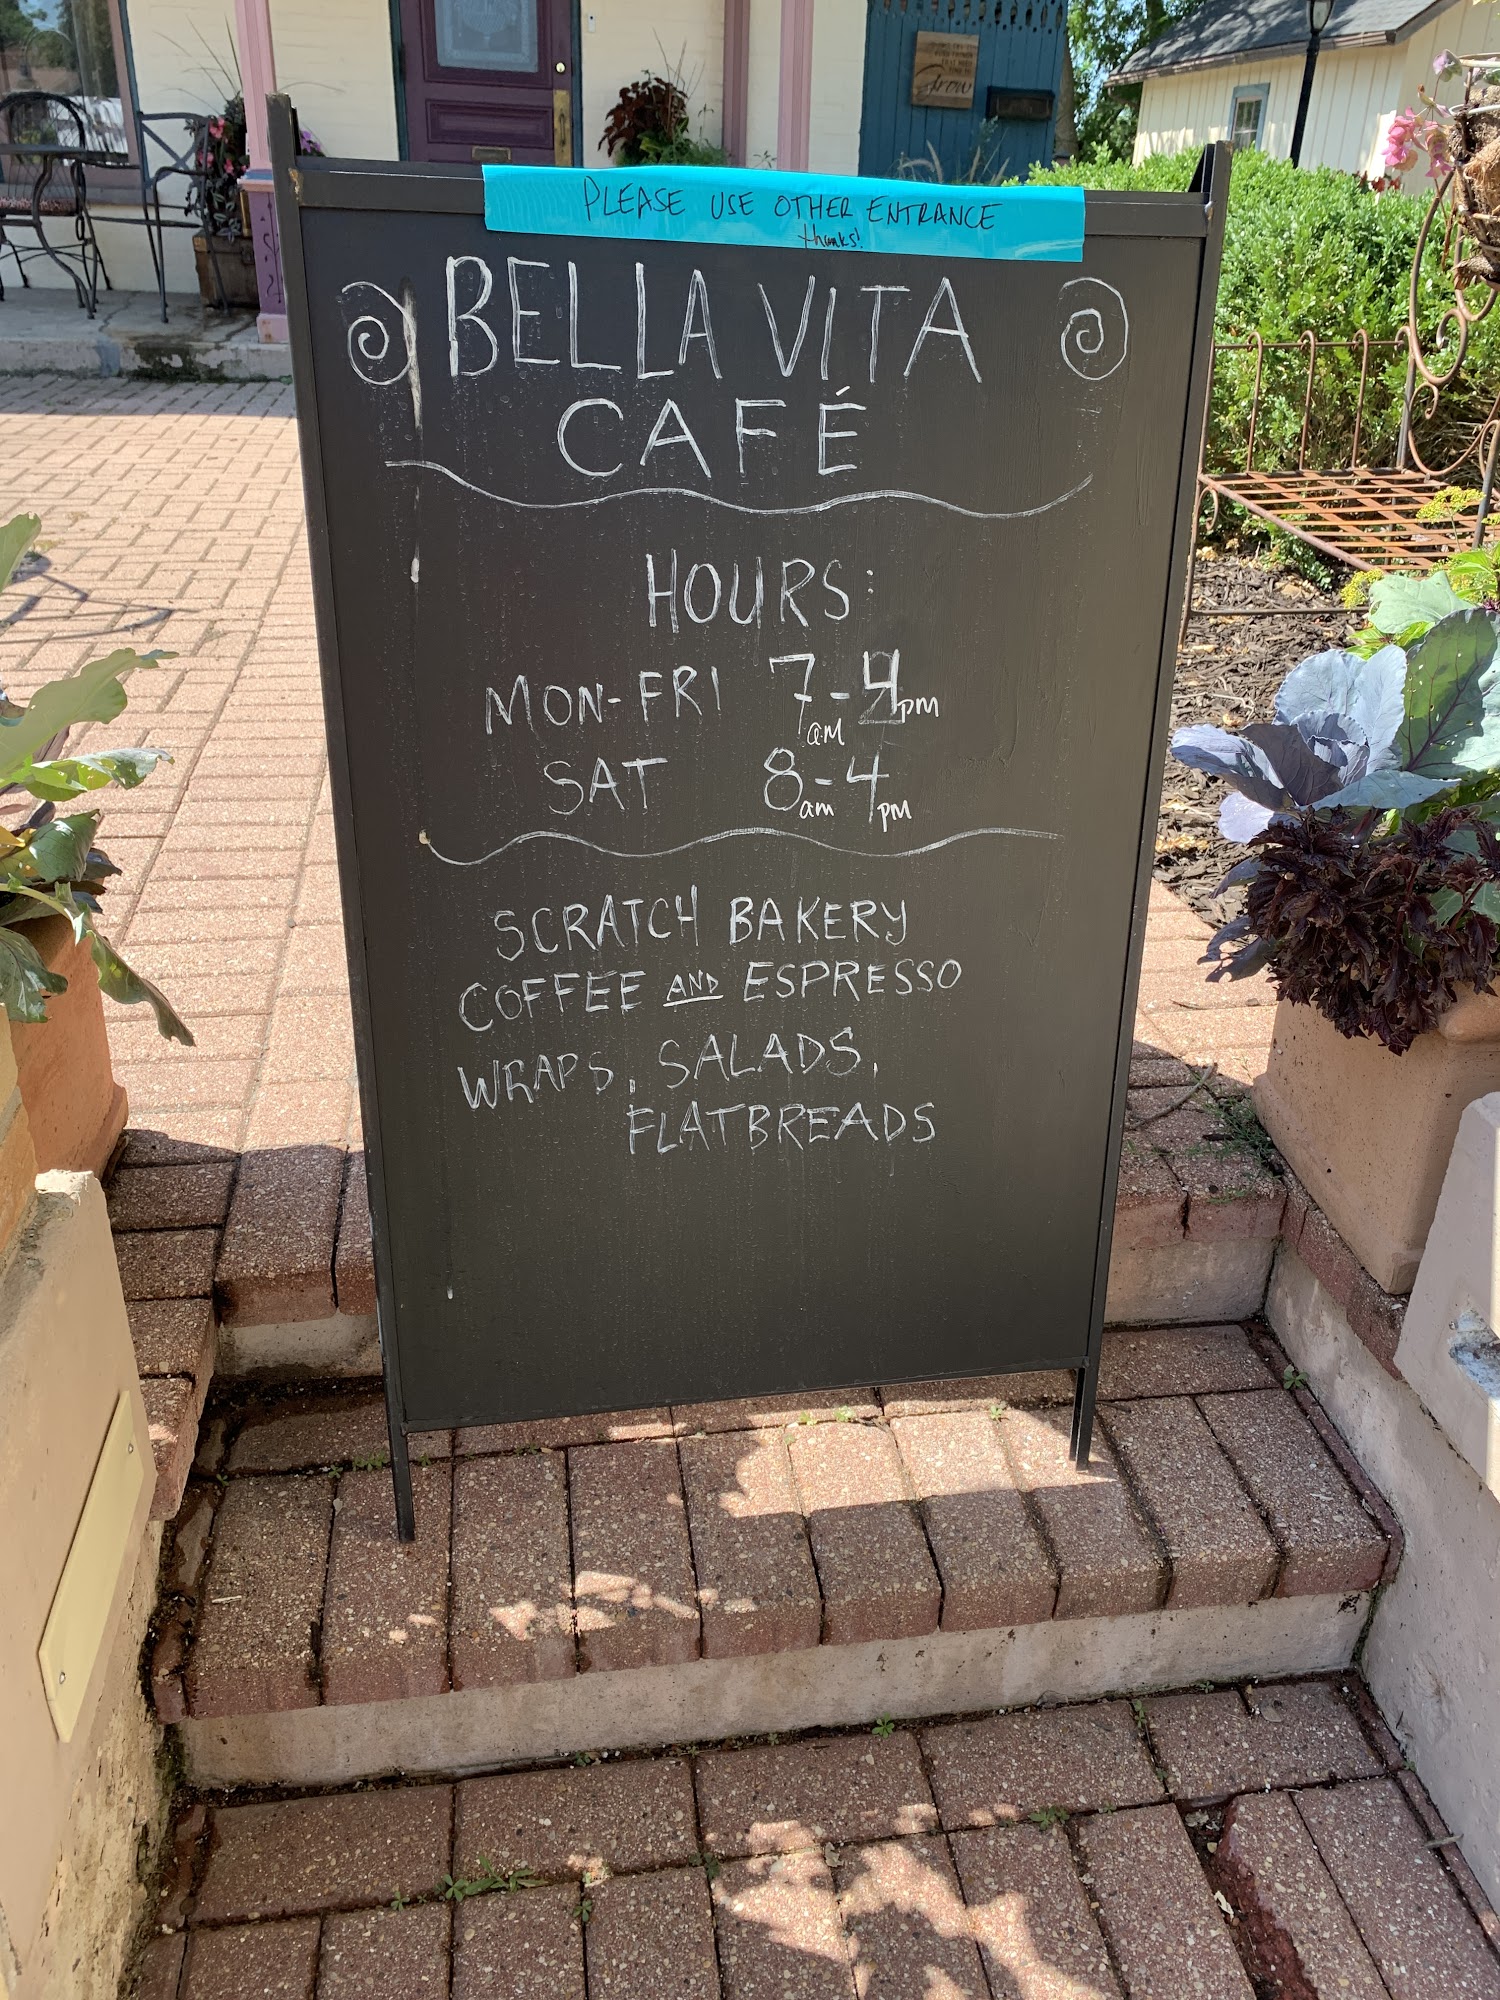 PLEASE USE OTHER ENTRANCE
thanks!
BELLA VITA
CAFÉ
HOURS:
MON-FRI 7am-4pm
SAT 8am-4pm
SCRATCH BAKERY
COFFEE AND ESPRESSO
WRAPS, SALADS,
FLATBREADS
Grow